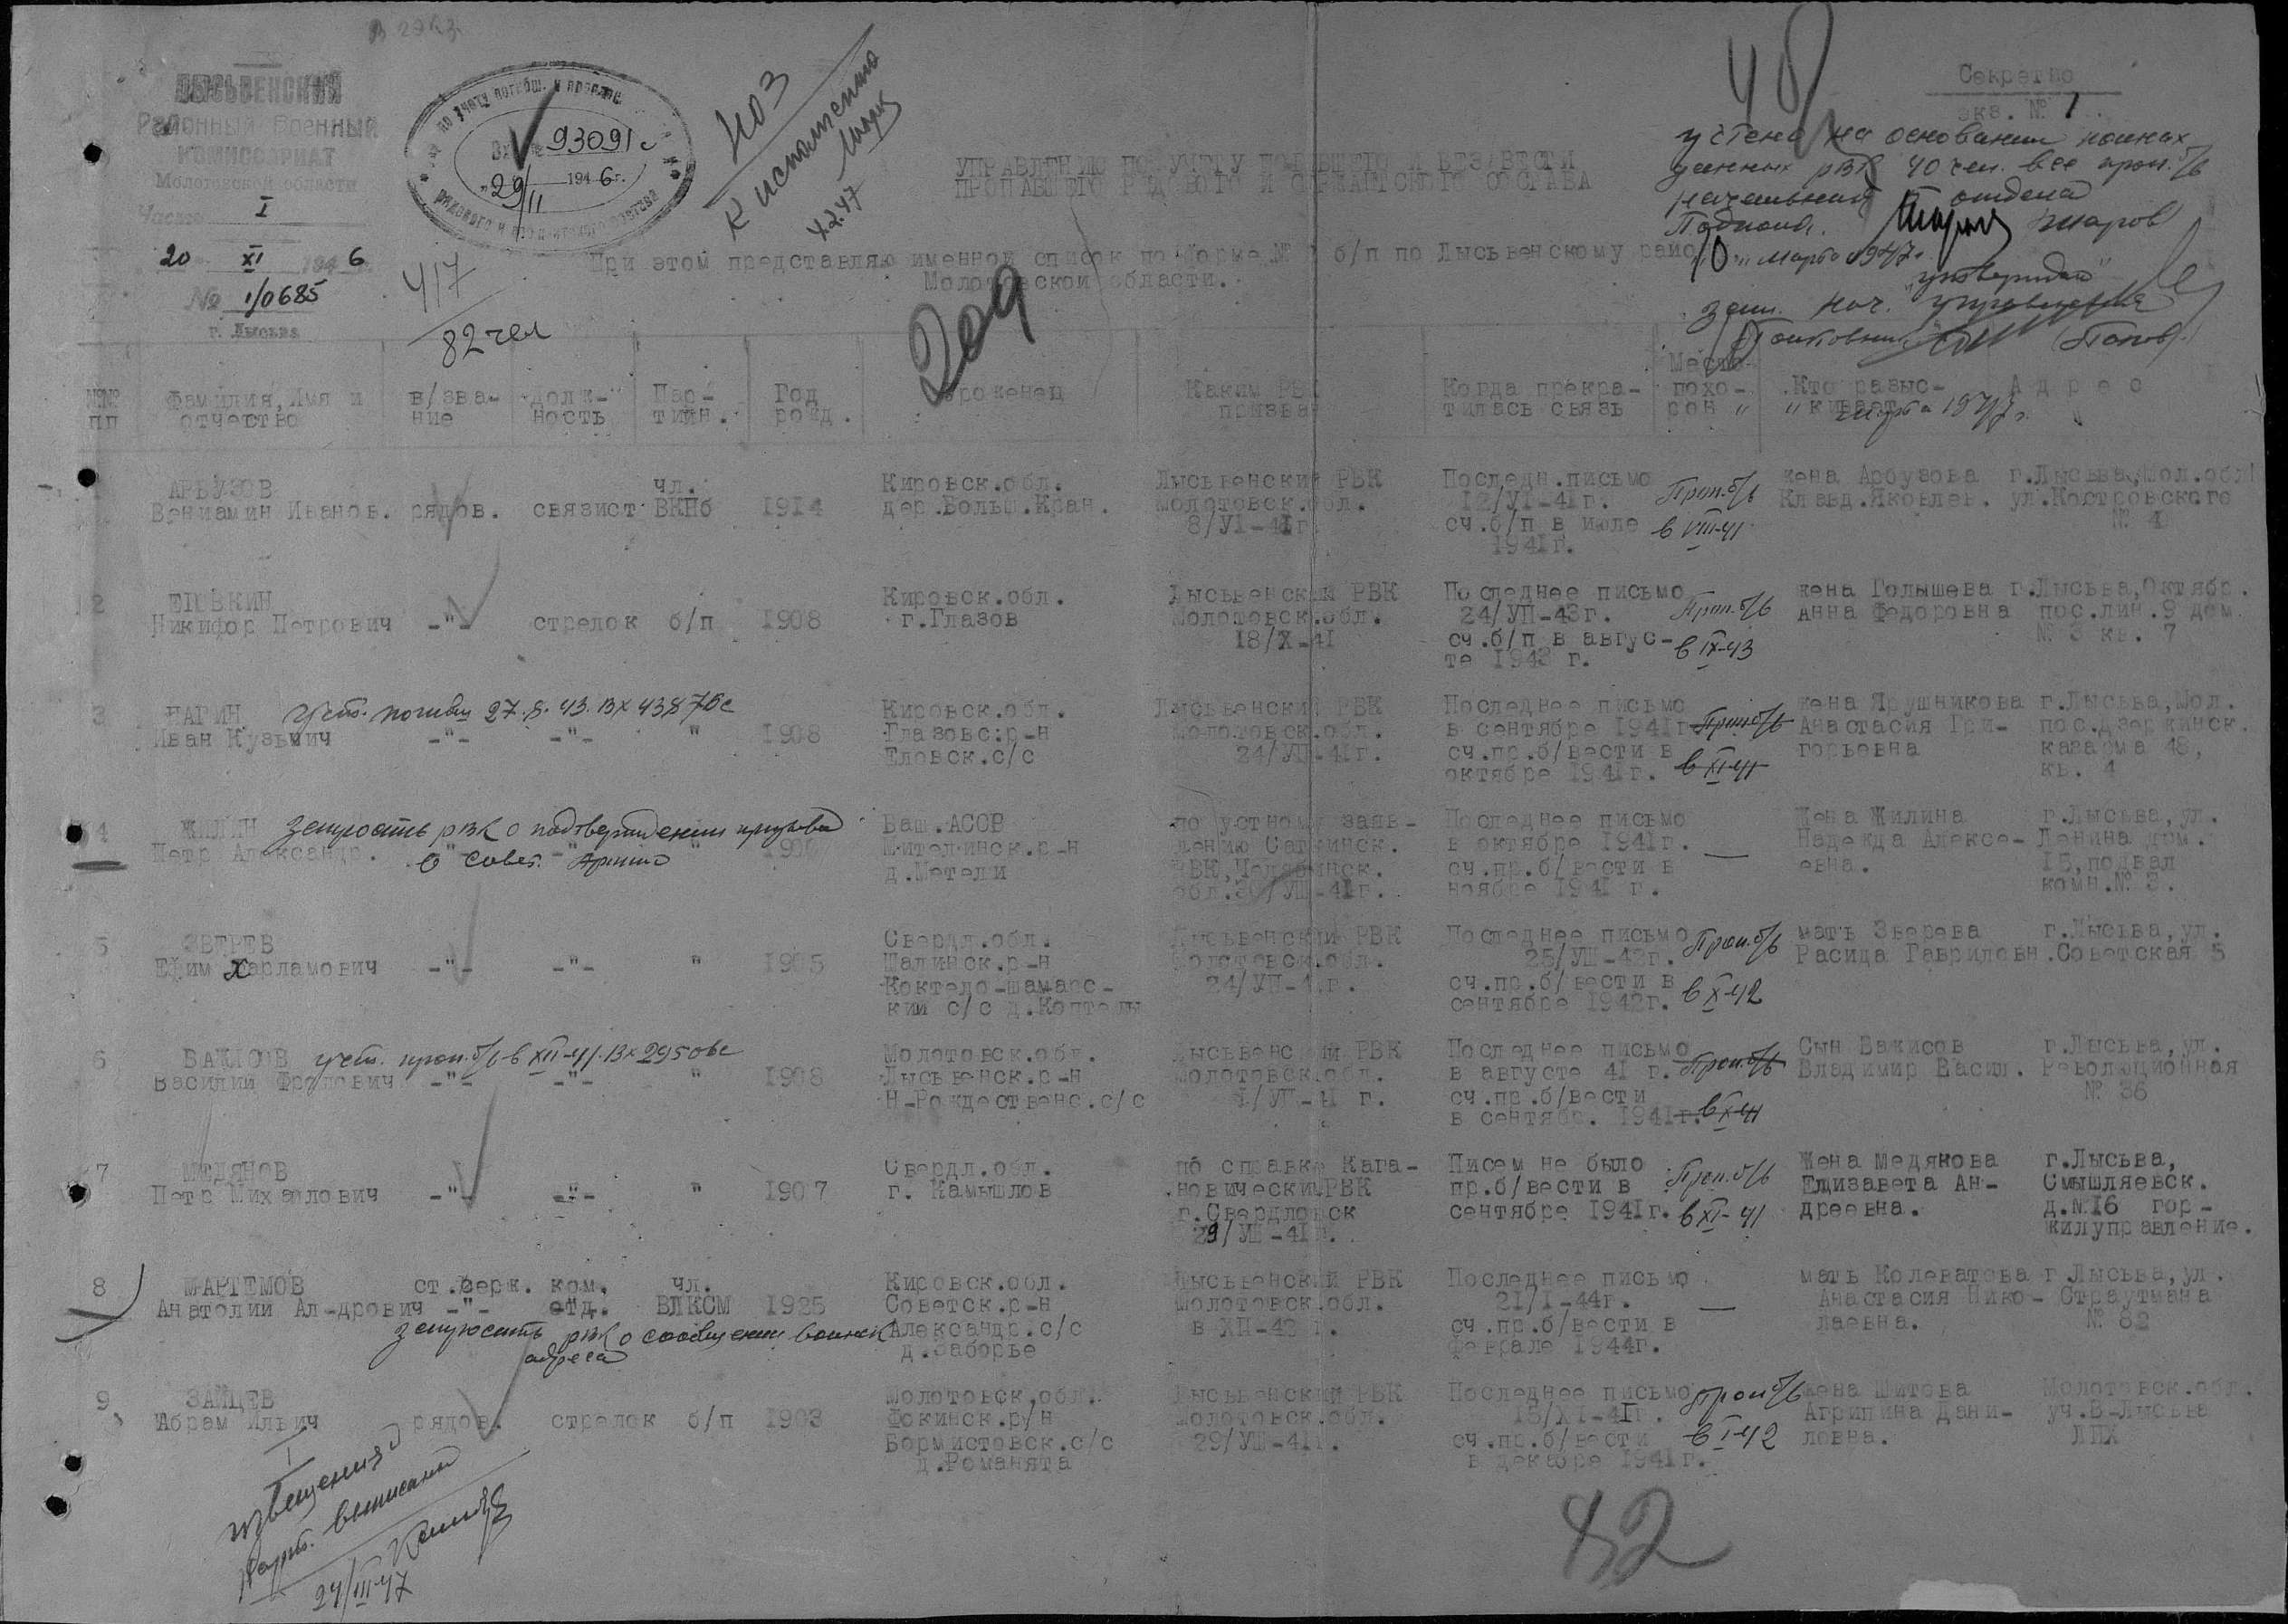 ЛЫСЬВЕНСКИЙ
Районный Военный
КОМИССАРИАТ
Молотовской области
Часть I
20 XI 1946
№ 1/0685
г. Лысьва
93091с
"29/II 1946г.
рядового и сержантского состава
К исполнению
4.2.47
417
82 чел
Секретно
экз. № 1
учтено на основании
данных РВК 40 чел. все проп. б/в
начальник отдела
Подполк. Шаров
"10" марта 1947г.
"утверждаю"
зам. нач. управления
Полковник (Попов)
марта 1947г.
УПРАВЛЕНИЮ ПО УЧЕТУ ПОГИБШЕГО И БЕЗ ВЕСТИ
ПРОПАВШЕГО РЯДОВОГО И СЕРЖАНТСКОГО СОСТАВА
При этом представляю именной список по Форме № б/п по Лысьвенскому
Молотовской области.
№№ пп
Фамилия, Имя и отчество
в/зва- ние
долж- ность
Пар- тийн.
Год рожд.
Уроженец
Каким РВК призван
Когда прекра- тилась связь
Место похо- рон
Кто разыс- кивает
Адрес
АРБУЗОВ чл. Кировск.обл. Лысьвенский РВК Последн.письмо жена Арбузова г.Лысьва,Мол.обл
Вениамин Иванов. рядов. связист ВКПб 1914 дер.Больш.Кран. Молотовск.обл. 12/УI-41г. Проп.б/в Клавд.Яковлев. ул.Костровского
8/УI-41г. сч.б/п в июле в VIII-41 № 4
1941г.
2 Кировск.обл. Лысьвенский РВК Последнее письмо жена Голышева г.Лысьва,Октябр.
Никифор Петрович -"- стрелок б/п 1908 г.Глазов Молотовск.обл. 24/УП-43г. Проп.б/в Анна Федоровна пос.лин.9 дом
18/X-41 сч.б/п в авгус- в IX-43 № 3 кв. 7
те 1943 г.
3 учт. погибш 27.8.43. вх 43876с Кировск.обл. Лысьвенский РВК Последнее письмо жена Ярушникова г.Лысьва,Мол.
Иван Кузьмич -"- -"- " 1908 Глазовс.р-н Молотовск.обл. в сентябре 1941г Проп б/в Анастасия Гри- пос.Дзержинск.
Еловск.с/с 24/УП-41г. сч.пр.б/вести в горьевна казарма 48,
октябре 1941г. в XI-41 кв. 4
4 ЖИЛИН запросить РВК о подтверждении призыва Баш.АССР по устному заяв- Последнее письмо Жена Жилина г.Лысьва, ул.
Петр Александр. в Совет. Армию лению Саткинск. в октябре 1941г. — Надежда Алексе- Ленина дом.
д.Метели РВК,Челябинск. сч.пр.б/вести в евна. 15,подвал
обл.30/УШ-41г. ноябре 1941 г. комн.№ 3.
5 ЗВЕРЕВ Свердл.обл. Лысьвенский РВК Последнее письмо Проп.б/в мать Зверева г.Лысьва,ул.
Ефим Харламович -"- -"- " 1905 Шалинск.р-н Молотовск.обл. 25/УШ-42г. Расида Гавриловн. Советская 5
24/УП-41г. сч.пр.б/вести в
кий с/с сентябре 1942г. в X-42
6 ВАЖИСОВ учт. проп.б/в в XII-41. вх 29506с Молотовск.обл. Лысьвенский РВК Последнее письмо Сын Важисов г.Лысьва,ул.
Василий Фролович -"- -"- " 1908 Лысьвенск.р-н Молотовск.обл. в августе 41 г. Проп.б/в Владимир Васил. Революционная
Н-Рождественс.с/с сч.пр.б/вести № 36
в сентябр. 1941г. в X-41
7 МЕДЯКОВ Свердл.обл. по справке Кага- Писем не было Проп.б/в Жена Медякова г.Лысьва,
Петр Михайлович -"- -"- " 1907 г. Камышлов новический РВК пр.б/вести в Елизавета Ан- Смышляевск.
г.Свердловск сентябре 1941г. в XI-41 дреевна. д.№16 гор-
29/УШ-41г. жилуправление.
8 МАРТЕМОВ ст.серж. ком. чл. Кировск.обл. Лысьвенский РВК Последнее письмо мать Колеватова г Лысьва,ул.
Анатолий Ал-дрович -"- отд. ВЛКСМ 1925 Советск.р-н Молотовск.обл. 21/I-44г. — Анастасия Нико- Страутмана
запросить РВК о сообщении воинск Александр.с/с в XП-42 г. сч.пр.б/вести в лаевна. № 82
адреса д.Заборье феврале 1944г.
9 ЗАЙЦЕВ Молотовск.обл. Лысьвенский РВК Последнее письмо проп б/в жена Шитова Молотовск.обл.
Абрам Ильич рядов. стрелок б/п 1903 Фокинск.р/н Молотовск.обл. 15/XI-41г. Агрипина Дани- уч.В-Лысьва
Бормистовск.с/с 29/УШ-41г. сч.пр.б/вести в I-42 ловна. ЛПХ
д.Романята в декабре 1941г.
извещения
выписаны
24/III-47
42